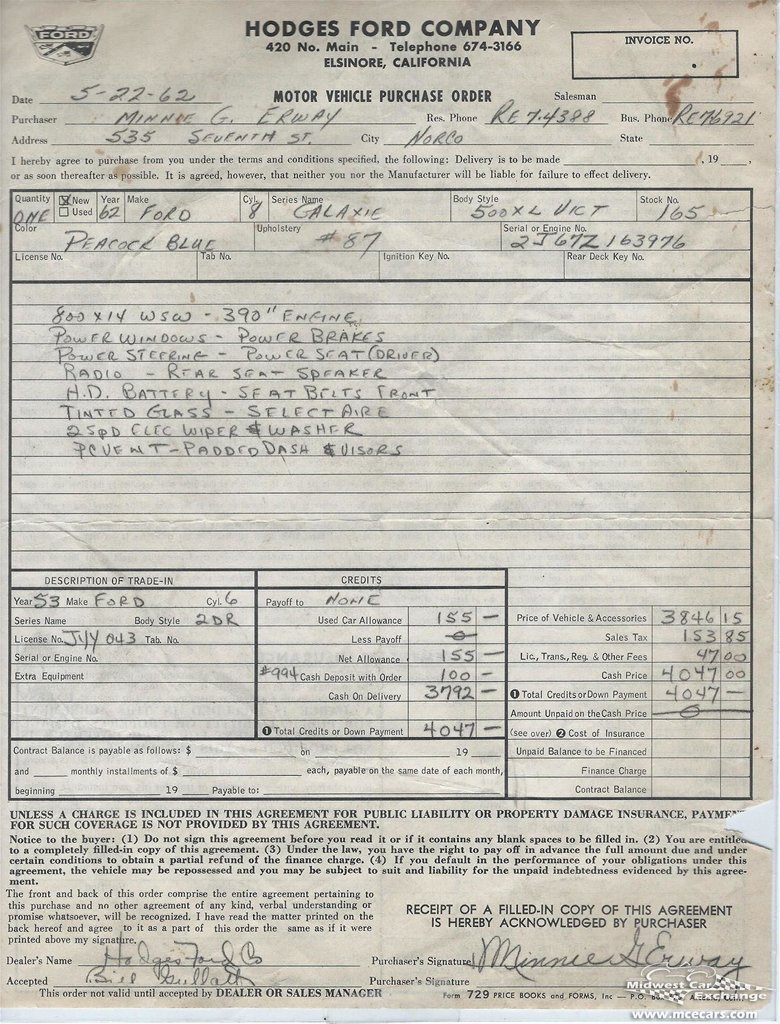 FORD
HODGES FORD COMPANY
420 No. Main - Telephone 674-3166
ELSINORE, CALIFORNIA
INVOICE NO.
Date 5-22-62 MOTOR VEHICLE PURCHASE ORDER Salesman
Purchaser MINNIE G. ERWAY Res. Phone RE 7.4388 Bus. Phone RE76921
Address 535 SEVENTH ST. City NORCO State
I hereby agree to purchase from you under the terms and conditions specified, the following: Delivery is to be made , 19 ,
or as soon thereafter as possible. It is agreed, however, that neither you nor the Manufacturer will be liable for failure to effect delivery.
Quantity New Year Make Cyl. Series Name Body Style Stock No.
ONE Used 62 FORD 8 GALAXIE 500XL VICT 165
Color Upholstery Serial or Engine No.
PEACOCK BLUE #87 2J67Z163976
License No. Tab No. Ignition Key No. Rear Deck Key No.
800X14 WSW - 390" ENGINE
POWER WINDOWS - POWER BRAKES
POWER STEERING - POWER SEAT (DRIVER)
RADIO - REAR SEAT SPEAKER
H.D. BATTERY - SEAT BELTS FRONT
TINTED GLASS - SELECT AIRE
2 SPD ELEC WIPER & WASHER
PCVENT - PADDED DASH & VISORS
DESCRIPTION OF TRADE-IN CREDITS
Year 53 Make FORD Cyl. 6 Payoff to NONE
Series Name Body Style 2DR Used Car Allowance 155 - Price of Vehicle & Accessories 3846 15
License No. JYY 043 Tab. No. Less Payoff 0 Sales Tax 153 85
Serial or Engine No. Net Allowance 155 - Lic., Trans., Reg. & Other Fees 47 00
Extra Equipment #994 Cash Deposit with Order 100 - Cash Price 4047 00
Cash On Delivery 3792 - 1 Total Credits or Down Payment 4047 -
Amount Unpaid on the Cash Price 0
1 Total Credits or Down Payment 4047 - (see over) 2 Cost of Insurance
Contract Balance is payable as follows: $ on 19 Unpaid Balance to be Financed
and monthly installments of $ each, payable on the same date of each month, Finance Charge
beginning 19 Payable to: Contract Balance
UNLESS A CHARGE IS INCLUDED IN THIS AGREEMENT FOR PUBLIC LIABILITY OR PROPERTY DAMAGE INSURANCE, PAYMEN
FOR SUCH COVERAGE IS NOT PROVIDED BY THIS AGREEMENT.
Notice to the buyer: (1) Do not sign this agreement before you read it or if it contains any blank spaces to be filled in. (2) You are entitled
to a completely filled-in copy of this agreement. (3) Under the law, you have the right to pay off in advance the full amount due and under
certain conditions to obtain a partial refund of the finance charge. (4) If you default in the performance of your obligations under this
agreement, the vehicle may be repossessed and you may be subject to suit and liability for the unpaid indebtedness evidenced by this agree-
ment.
The front and back of this order comprise the entire agreement pertaining to
this purchase and no other agreement of any kind, verbal understanding or
promise whatsoever, will be recognized. I have read the matter printed on the
back hereof and agree to it as a part of this order the same as if it were
printed above my signature.
RECEIPT OF A FILLED-IN COPY OF THIS AGREEMENT
IS HEREBY ACKNOWLEDGED BY PURCHASER
Dealer's Name Hodges Ford Co Purchaser's Signature Minnie G Erway
Accepted Bill Purchaser's Signature
This order not valid until accepted by DEALER OR SALES MANAGER Form 729 PRICE BOOKS and FORMS, Inc — P.O.
Midwest Car Exchange
www.mcecars.com